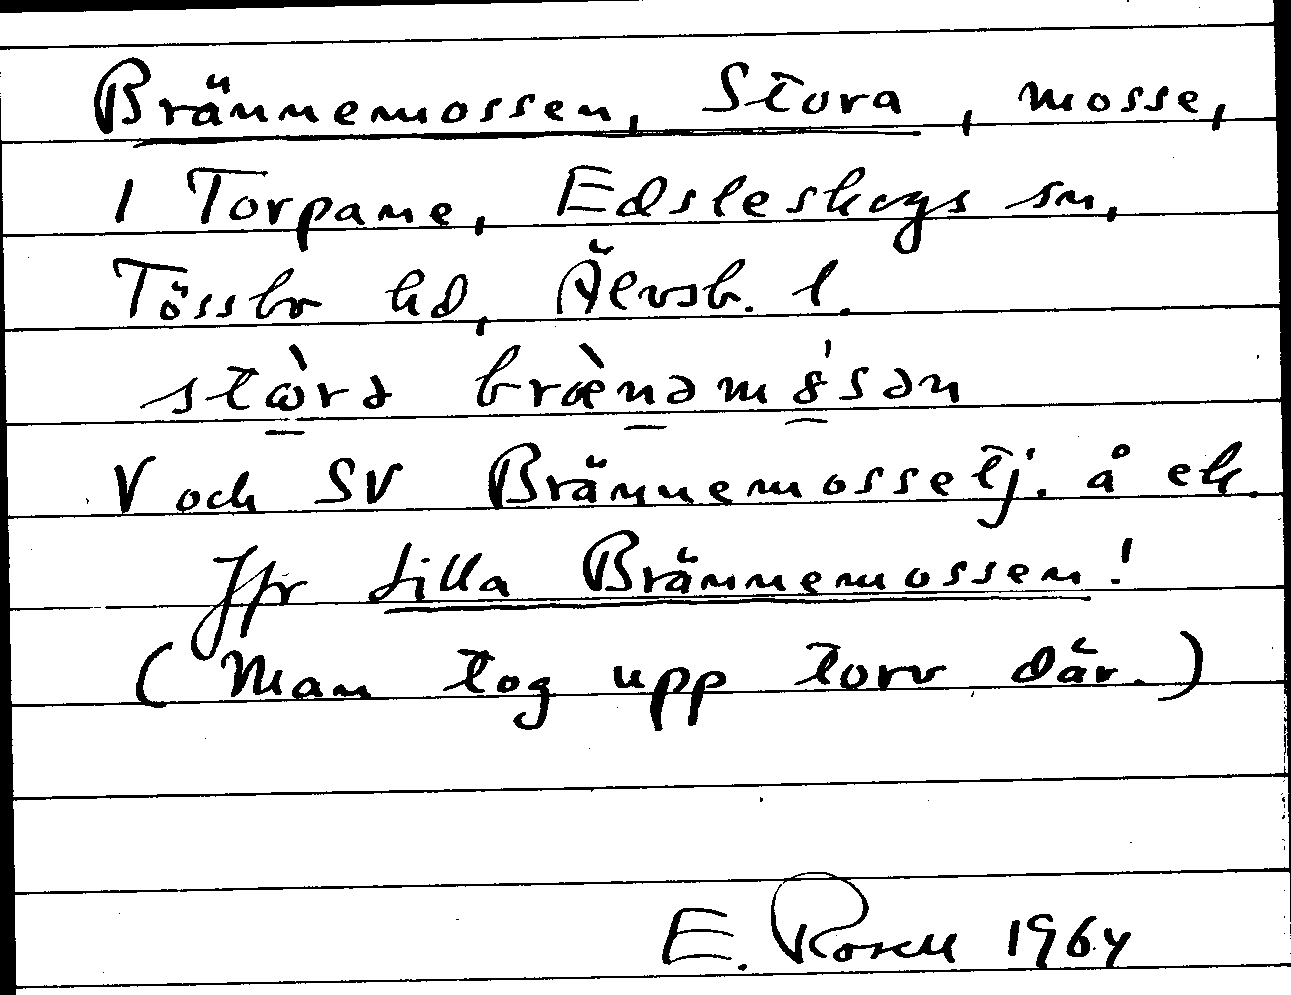 Brännemossen, Stora, mosse,
1 Torpane, Edsleskogs sn,
Tössbo hd, Älvsb. l.
stɷ̀rə brænəm8̍sən
V och SV Brännemossetj. å ek.
Jfr Lilla Brännemossen!
(Man tog upp torv där.)
E. Rosell 1964